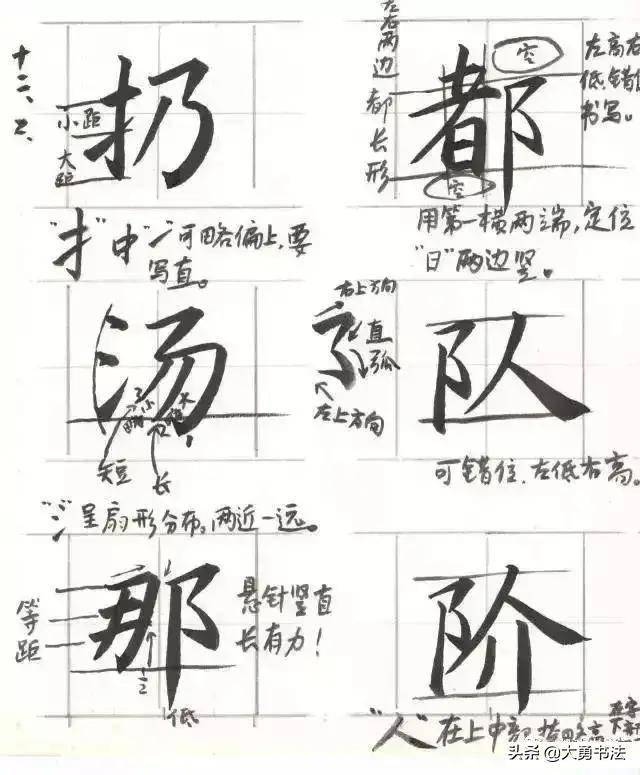 十二、2、
扔
小距
大距
"扌"中"㇀"可略偏上，要
写直。
左右两边都长形
都
空
空
左高右
低错
书写。
用第一横两端，定位
"日"两边竖。
汤
短
长
"氵"呈扇形分布，两近一远。
右上方向
直
弧
左上方向
队
可错位，左低右高。
那
等距
1/2
低
悬针竖直
长有力！
阶
"人"在上中部
头条@大勇书法